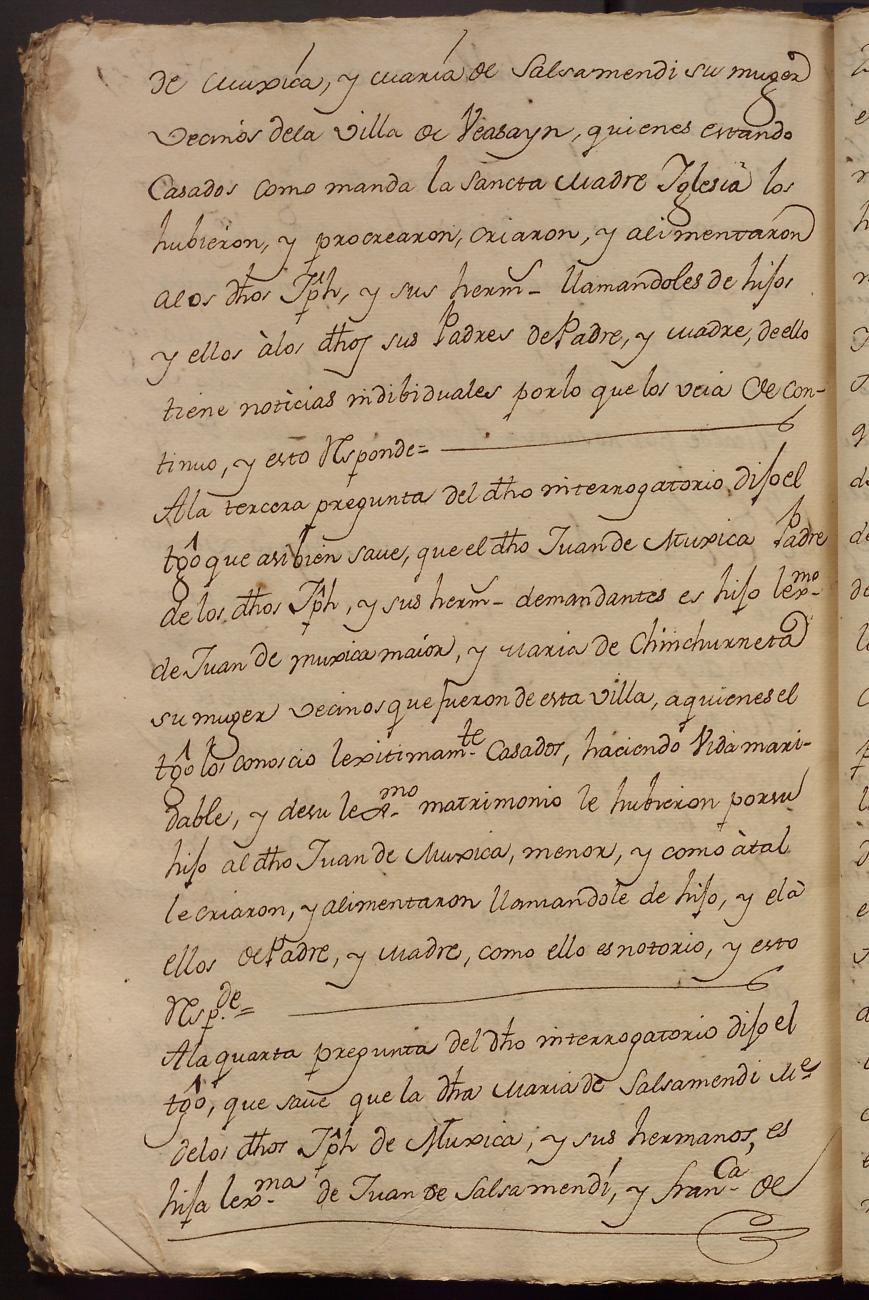 de Muxica, y Maria de Salsamendi su muger
Vecinos dela Villa de Veasayn, quienes estando
Casados como manda la Sancta Madre Iglesia los
hubieron, y procrearon, criaron, y alimentaron
alos dhos Jph, y sus herms llamandoles de hijos
y ellos àlos dhos sus Padres de Padre, y Madre, de ello
tiene noticias indibiduales porlo que los veia de con-
tinuo, y esto Responde=
Ala tercera pregunta del dho interrogatorio dijo el
tgô que asibien save, que el dho Juan de Muxica Padre
de los dhos Jph, y sus herms demandantes es hijo lexmo
de Juan de muxica maior, y Maria de Chinchurreta
su muger vecinos que fueron de esta villa, aquienes el
tgô los conoscio lexitimamte Casados, haciendo Vida mari-
dable, y desu lexmo matrimonio le hubieron porsu
hijo al dho Juan de Muxica, menor, y como àtal
le criaron, y alimentaron llamandole de hijo, y el à
ellos de Padre, y Madre, como ello es notorio, y esto
Resp.de=
Ala quarta pregunta del dho interrogatorio dijo el
tgô, que save que la dha Maria de Salsamendi Me
delos dhos Jph de Muxica, y sus hermanos, es
hija lexma de Juan de Salsamendi, y Franca de